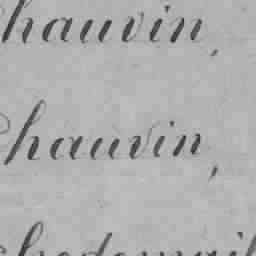 hauvin,
hauvin,